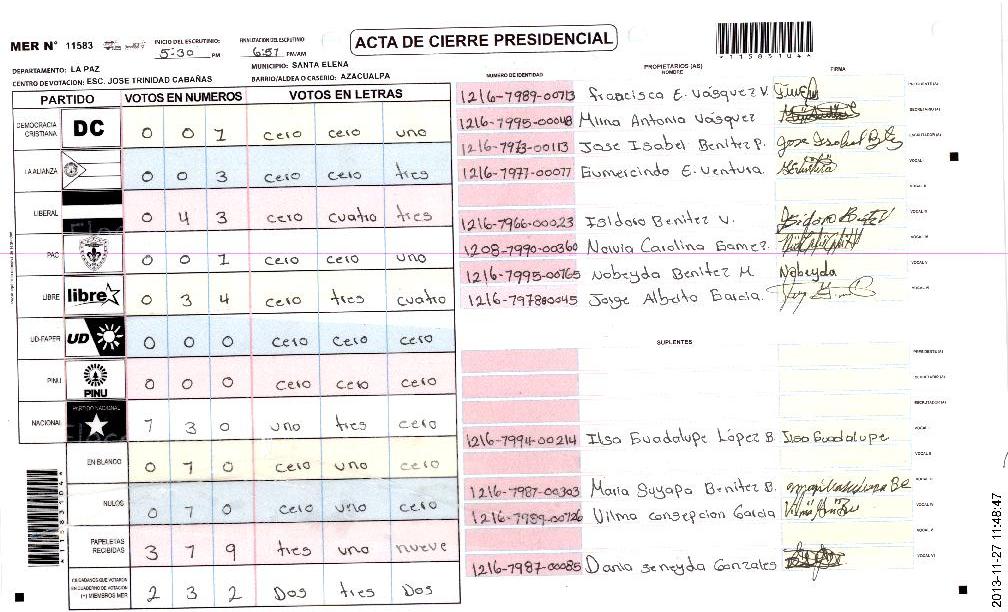 MER N° 11583
INICIO DEL ESCRUTINIO: 5:30 PM
FINALIZACION DEL ESCRUTINIO: 6:51 PM/AM
ACTA DE CIERRE PRESIDENCIAL
*11583104*
DEPARTAMENTO: LA PAZ
MUNICIPIO: SANTA ELENA
CENTRO DE VOTACION: ESC. JOSE TRINIDAD CABAÑAS
BARRIO/ALDEA O CASERIO: AZACUALPA
PARTIDO VOTOS EN NUMEROS VOTOS EN LETRAS
DEMOCRACIA CRISTIANA DC 0 0 1 cero cero uno
LA ALIANZA 0 0 3 cero cero tres
LIBERAL 0 4 3 cero cuatro tres
PAC 0 0 1 cero cero uno
LIBRE libre 0 3 4 cero tres cuatro
UD-FAPER UD 0 0 0 cero cero cero
PINU PINU 0 0 0 cero cero cero
NACIONAL PARTIDO NACIONAL 1 3 0 uno tres cero
EN BLANCO 0 1 0 cero uno cero
NULOS 0 1 0 cero uno cero
PAPELETAS RECIBIDAS 3 1 9 tres uno nueve
CIUDADANOS QUE VOTARON EN CUADERNO DE VOTACION (+) MIEMBROS MER 2 3 2 Dos tres Dos
NUMERO DE IDENTIDAD PROPIETARIOS (AS) NOMBRE FIRMA
1216-1989-00113 Francisca E. Vásquez V. PRESIDENTE(A)
1216-1995-00048 Mlina Antonia Vasquez SECRETARIO(A)
1216-1973-00113 Jose Isabel Benitez P. Jose Isabel ESCRUTADOR(A)
1216-1977-00077 Gumercindo E. Ventura. VOCAL I
VOCAL II
1216-1966-00023 Isidoro Benitez V. Isidoro VOCAL III
1208-1990-00360 Navia Carolina Gamez. VOCAL IV
1216-1995-00165 Nobeyda Benitez M. Nobeyda VOCAL V
1216-197800045 Jorge Alberto Garcia. VOCAL VI
SUPLENTES
PRESIDENTE(A)
SECRETARIO(A)
ESCRUTADOR(A)
1216-1994-00214 Ilsa Guadalupe López B Ilsa Guadalupe VOCAL I
VOCAL II
1216-1987-00303 Maria Suyapa Benitez B. VOCAL III
1216-1989-00126 Vilma Consepcion Garcia Vilma VOCAL IV
VOCAL V
1216-1987-00085 Dania Seneyda Gonzales VOCAL VI
*11583104*
2013-11-27 11:48:47